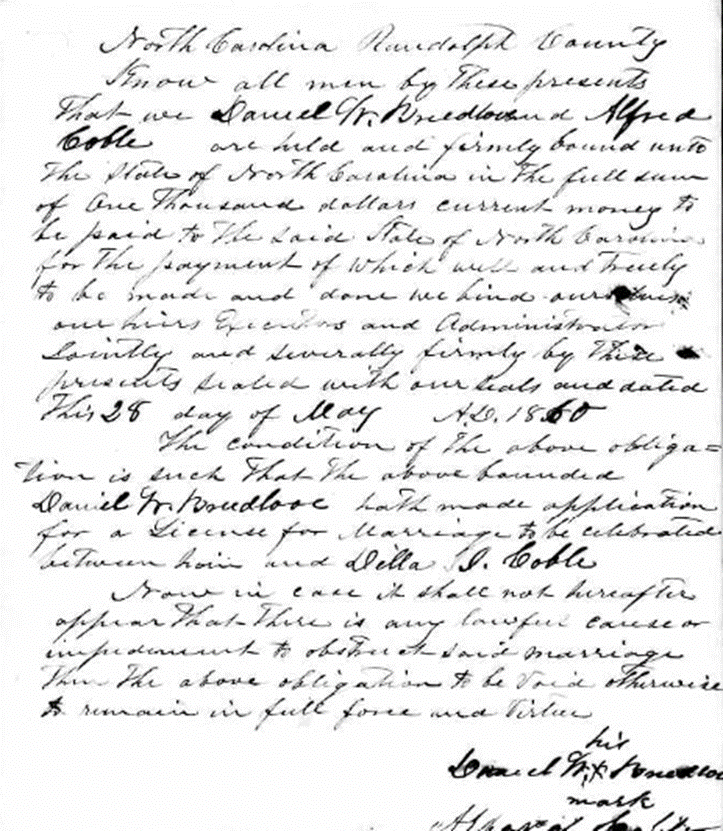 North Carolina Randolph County
Know all men by these presents
that we Daniel W. Breedlove and Alfred
Coble are held and firmly bound unto
the State of North Carolina in the full sum
of One Thousand dollars current money to
be paid to the said State of North Carolina
for the payment of which well and truely
to be made and done we bind ourselves
our heirs Executors and Administrator
Jointly and severally firmly by these
presents sealed with our seals and dated
this 28 day of May A.D. 1860
The condition of the above obliga=
tion is such that the above bounded
Daniel W. Breedlove hath made application
for a License for Marriage to be celebrated
between him and Della I. Coble
Now in case it shall not hereafter
appear that there is any lawful cause or
impediment to obstruct said marriage
then the above obligation to be void otherwise
to remain in full force and virtue
his
Daniel W. X Breedlov
mark